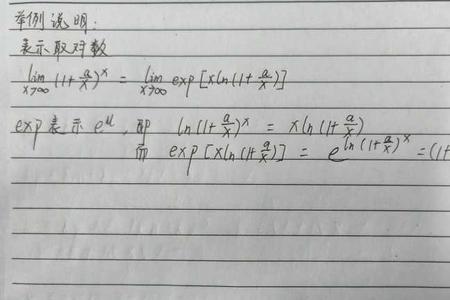 举例说明:
表示取对数
lim x→∞ (1+a/x)^x = lim x→∞ exp[xln(1+a/x)]
exp表示e^u, 即 ln(1+a/x)^x = xln(1+a/x)
而 exp[xln(1+a/x)] = e^ln(1+a/x)^x = (1+